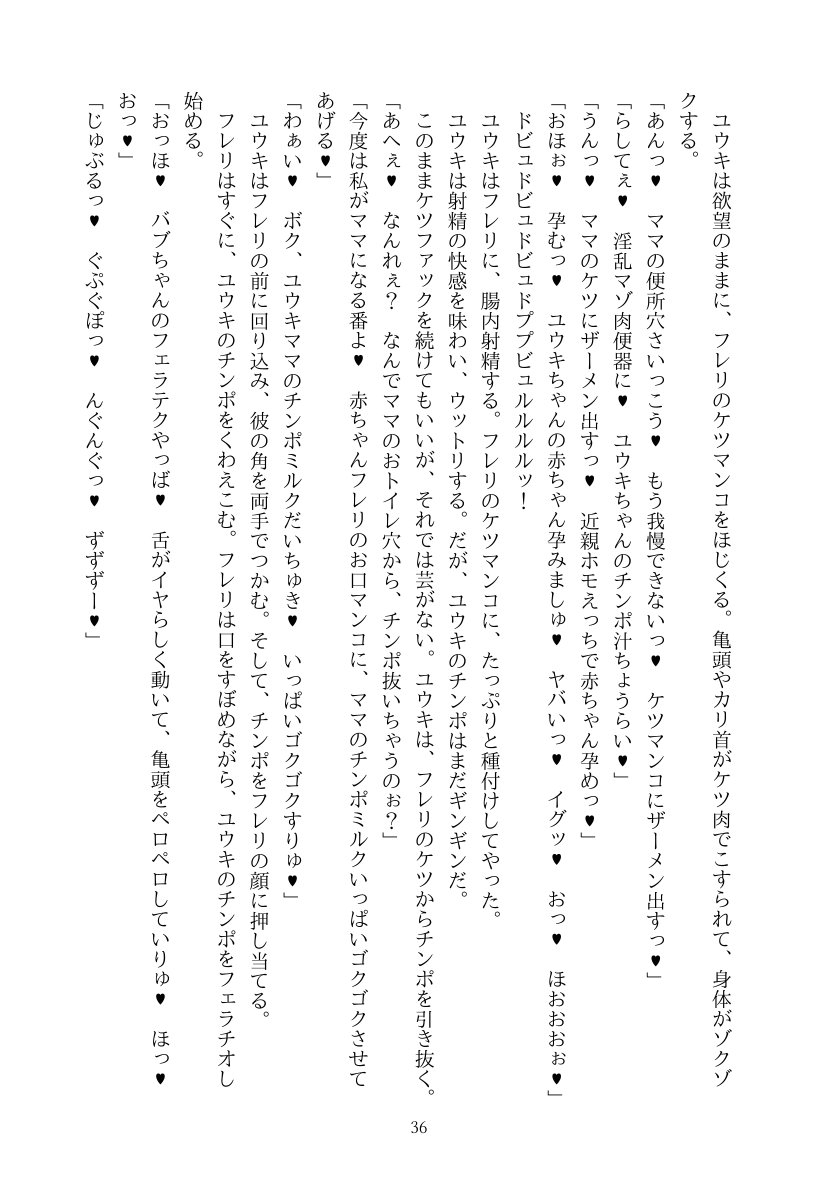 ユウキは欲望のままに、フレリのケツマンコをほじくる。亀頭やカリ首がケツ肉でこすられて、身体がゾクゾ
クする。
「あんっ♥　ママの便所穴さいっこう♥　もう我慢できないっ♥　ケツマンコにザーメン出すっ♥」
「らしてぇ♥　淫乱マゾ肉便器に♥　ユウキちゃんのチンポ汁ちょうらい♥」
「うんっ♥　ママのケツにザーメン出すっ♥　近親ホモえっちで赤ちゃん孕めっ♥」
「おほぉ♥　孕むっ♥　ユウキちゃんの赤ちゃん孕みましゅ♥　ヤバいっ♥　イグッ♥　おっ♥　ほおおおぉ♥」
ドビュドビュドビュドププビュルルルルッ！
ユウキはフレリに、腸内射精する。フレリのケツマンコに、たっぷりと種付けしてやった。
ユウキは射精の快感を味わい、ウットリする。だが、ユウキのチンポはまだギンギンだ。
このままケツファックを続けてもいいが、それでは芸がない。ユウキは、フレリのケツからチンポを引き抜く。
「あへぇ♥　なんれぇ？　なんでママのおトイレ穴から、チンポ抜いちゃうのぉ？」
「今度は私がママになる番よ♥　赤ちゃんフレリのお口マンコに、ママのチンポミルクいっぱいゴクゴクさせて
あげる♥」
「わぁい♥　ボク、ユウキママのチンポミルクだいちゅき♥　いっぱいゴクゴクすりゅ♥」
ユウキはフレリの前に回り込み、彼の角を両手でつかむ。そして、チンポをフレリの顔に押し当てる。
フレリはすぐに、ユウキのチンポをくわえこむ。フレリは口をすぼめながら、ユウキのチンポをフェラチオし
始める。
「おっほ♥　バブちゃんのフェラテクやっば♥　舌がイヤらしく動いて、亀頭をペロペロしていりゅ♥　ほっ♥
おっ♥」
「じゅぶるっ♥　ぐぷぐぽっ♥　んぐんぐっ♥　ずずずー♥」
36